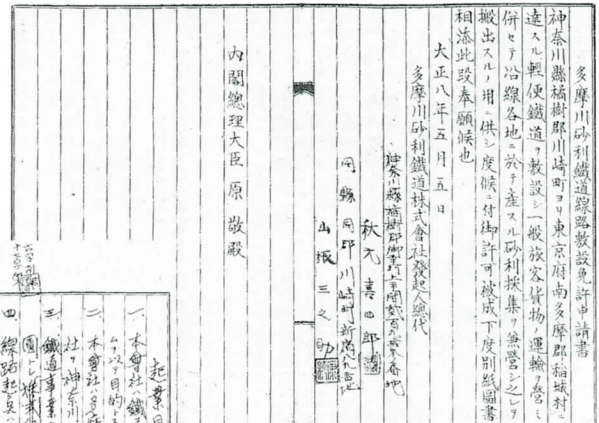 多摩川砂利鐵道線路敷設免許申請書
神奈川縣橘樹郡川崎町ヨリ東京府南多摩郡稲城村ニ
達スル輕便鐵道ヲ敷設シ一般旅客貨物ノ運輸ヲ營ミ
併セテ沿線各地ニ於テ産スル砂利採集ヲ兼營シ之レヲ
搬出スルノ用ニ供シ度候ニ付御許可被成下度別紙圖書
相添此段奉願候也
大正八年五月五日
多摩川砂利鐵道株式會社發起人總代
神奈川縣橘樹郡御幸村上平間
秋元喜四郎
同縣同郡川崎町新宿九番地
山根三之助
内閣總理大臣原敬殿
起業目
一、本會社ハ鐵
ムヲ以テ目的トス
二、本會社ハ多摩
社ヲ神奈川
三、鐵道事業
圓トシ株式
四、線路起點ハ